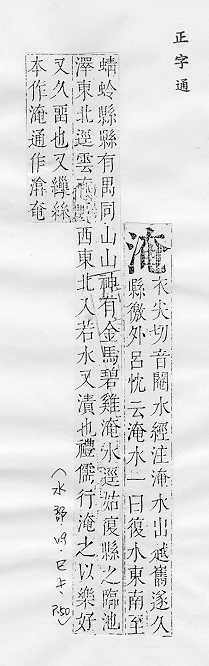 正字通
淹
衣尖切音閹水經注淹水出越嶲遂久
縣徼外呂忱云淹水一曰復水東南至
蜻蛉縣縣有禺同山山神有金馬碧雞淹水逕姑復縣之臨池
澤東北逕雲南縣西東北入若水又漬也禮儒行淹之以樂好
又久留也又繅絲
本作淹通作渰奄
(水部·49·
P.50)